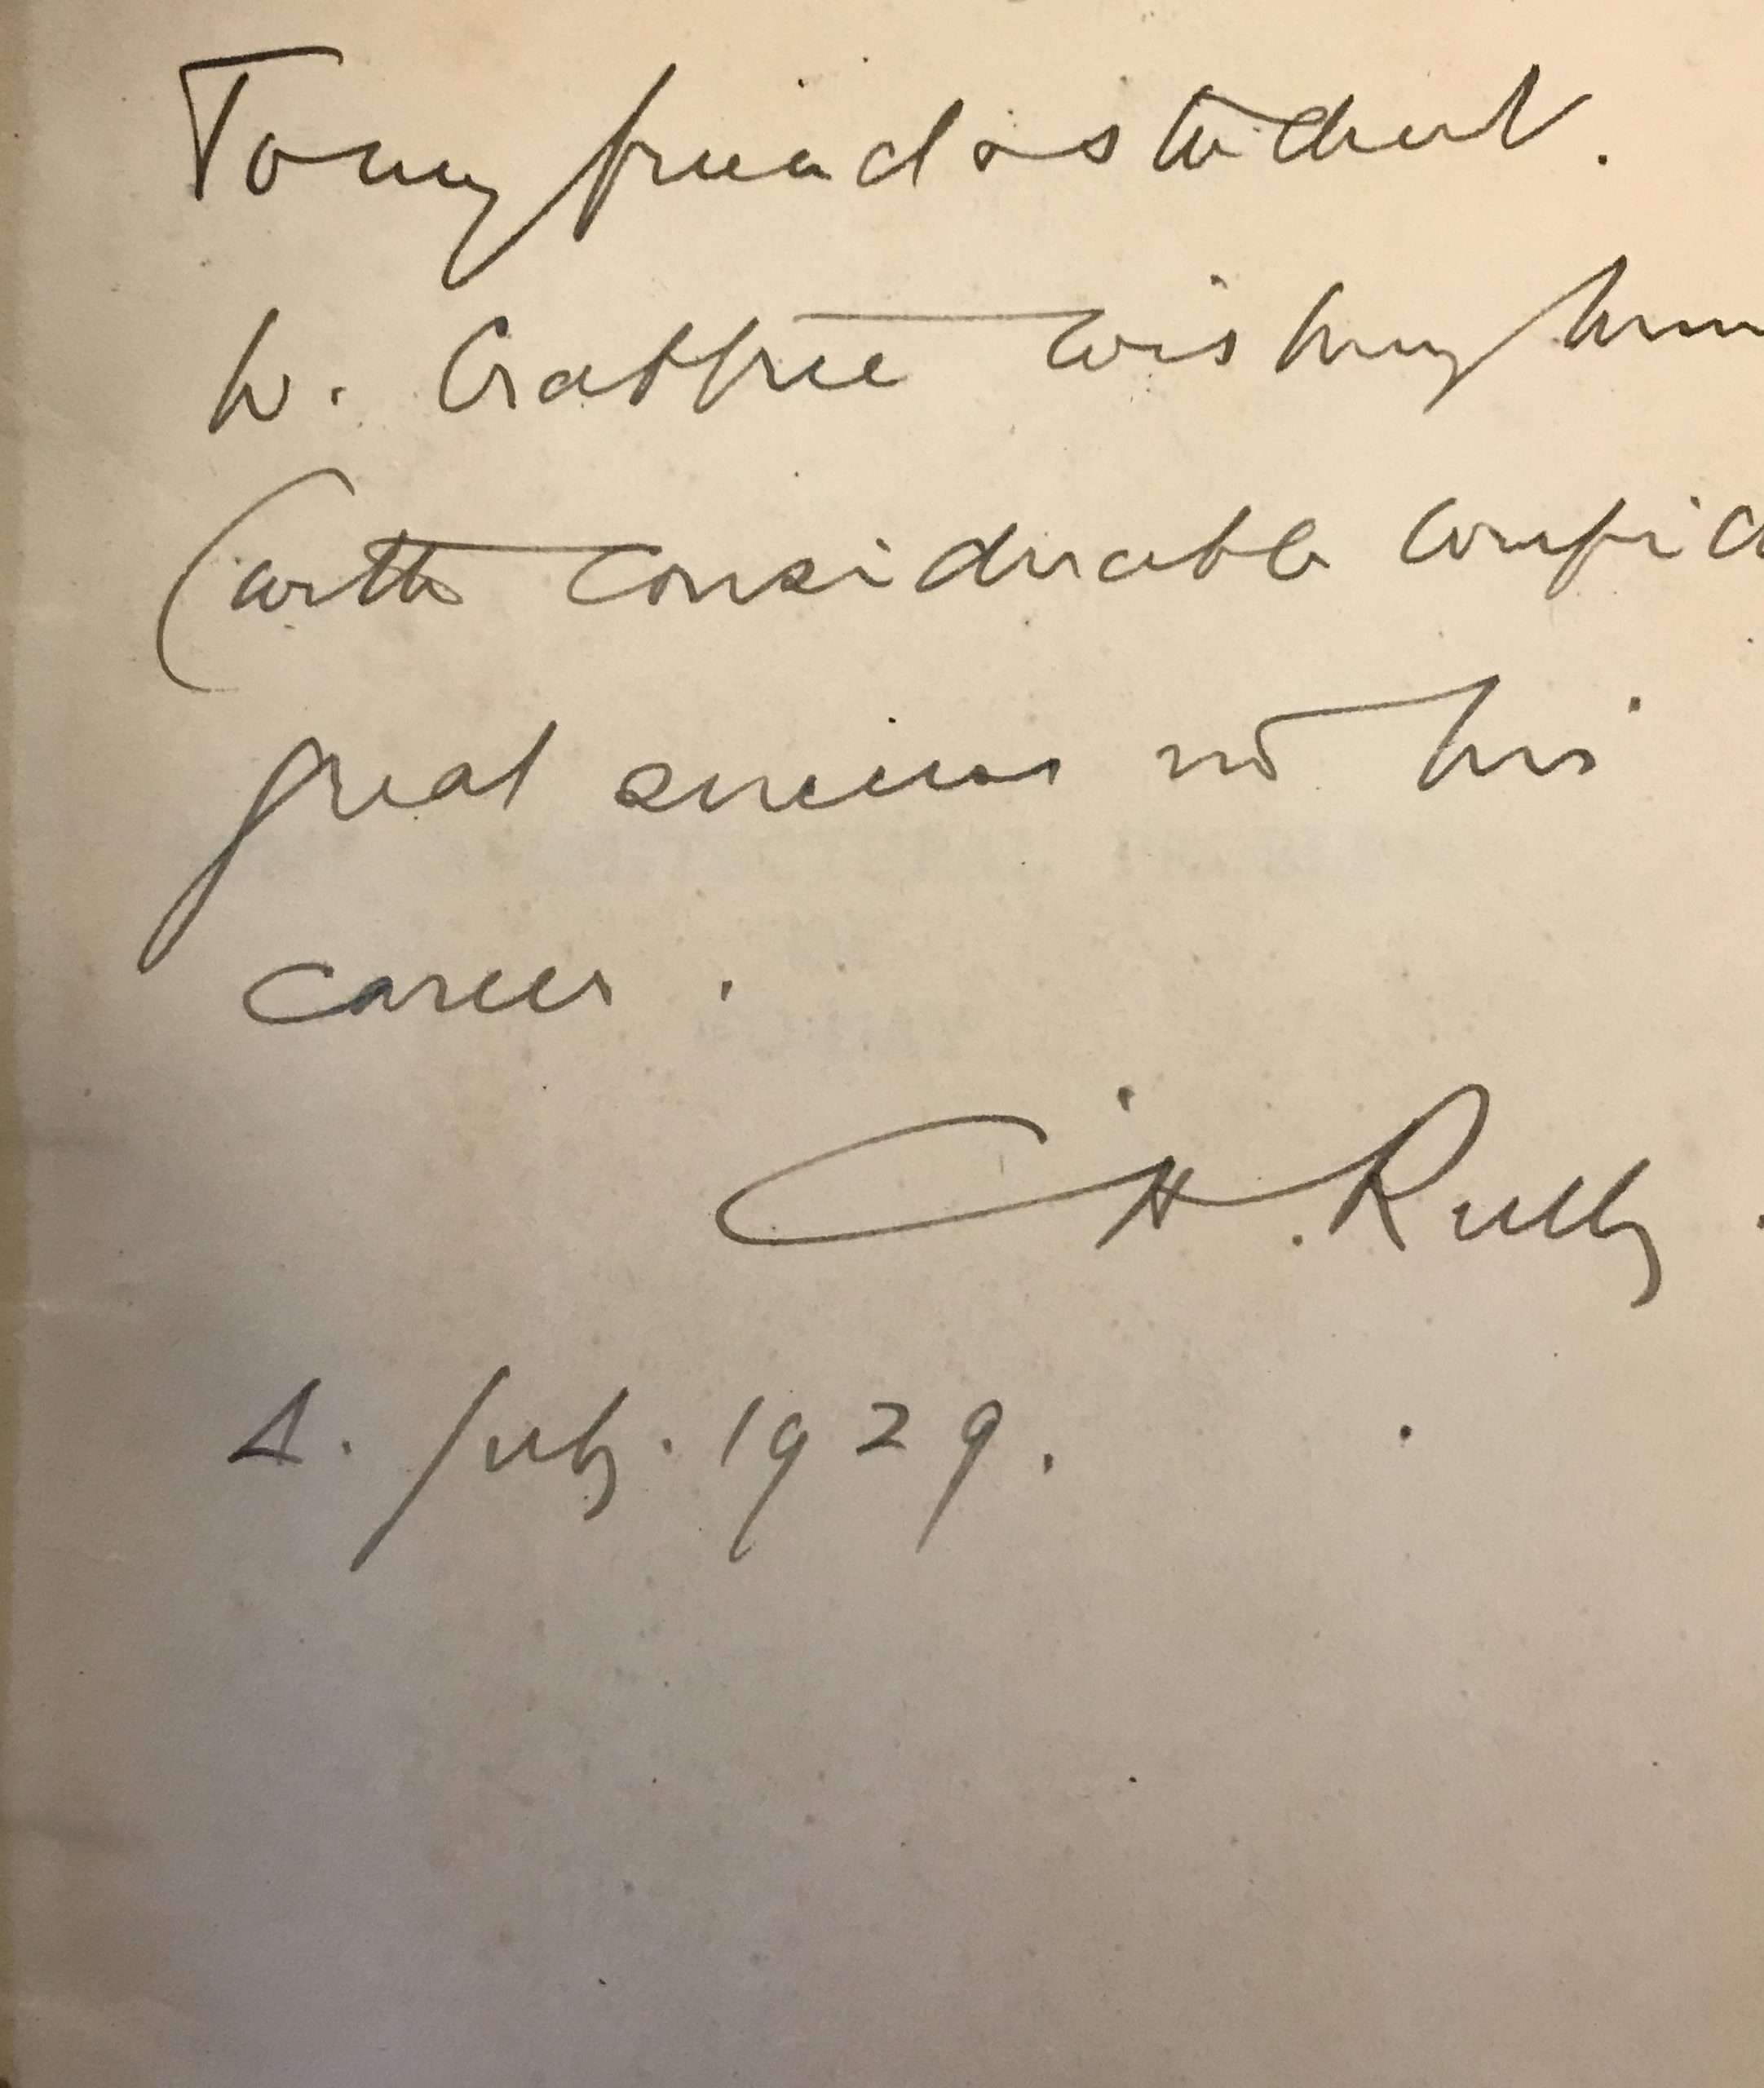 To my friend & student.
W. Crabtree wishing him
(with considerable confid
great success in his
career.
C.H. Reilly.
4. July. 1929.